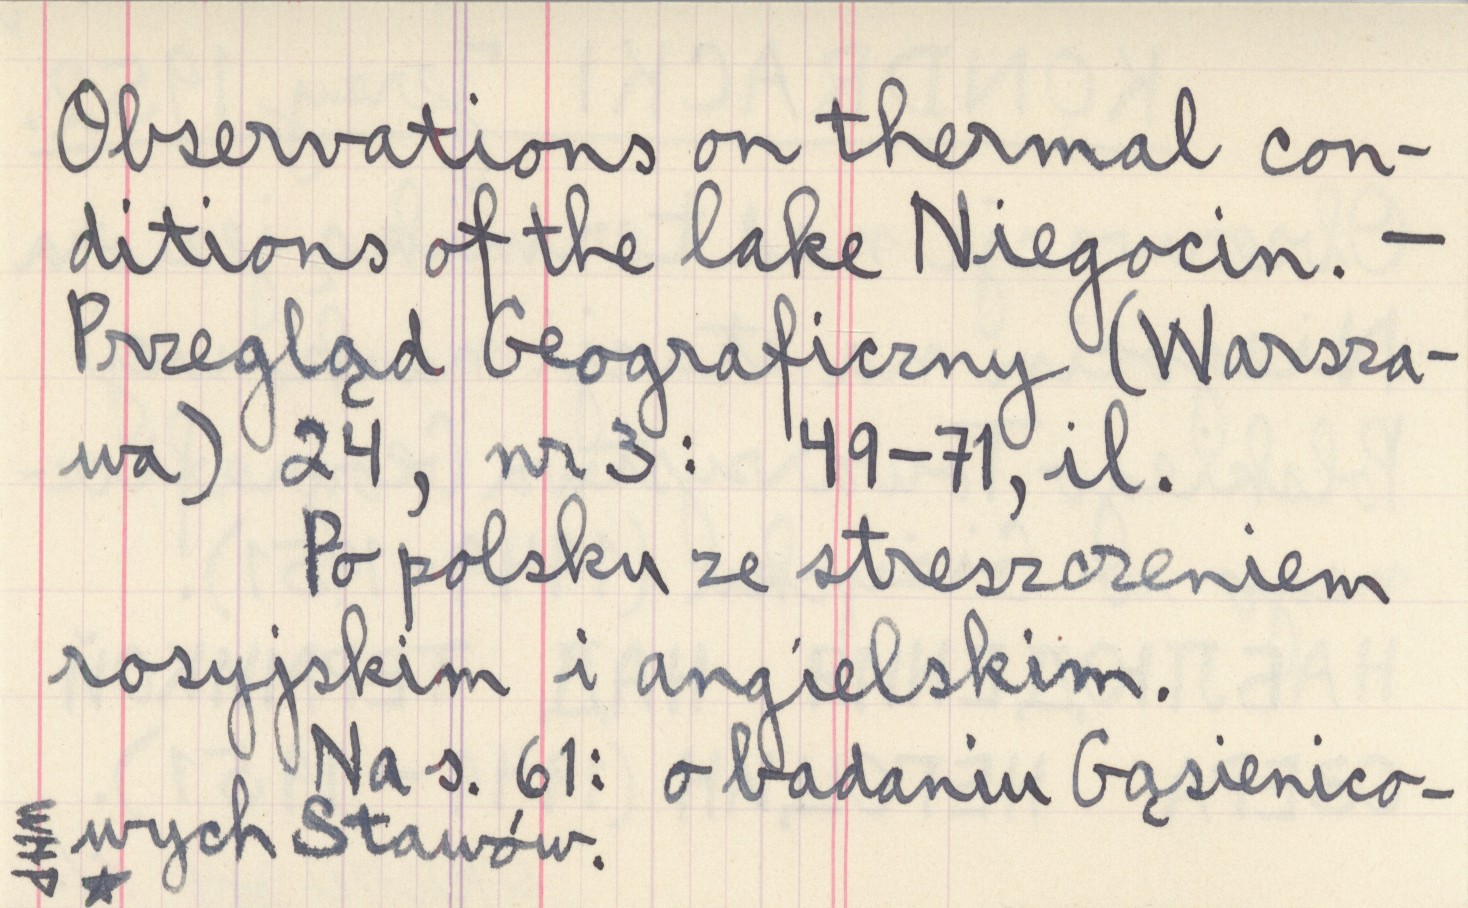 Observations on thermal con-
ditions of the lake Niegocin. —
Przegląd Geograficzny (Warsza-
wa) 24, nr 3: 49-71, il.
Po polsku ze streszczeniem
rosyjskim i angielskim.
Na s. 61: o badaniu Gąsienico-
wych Stawów.
WHP